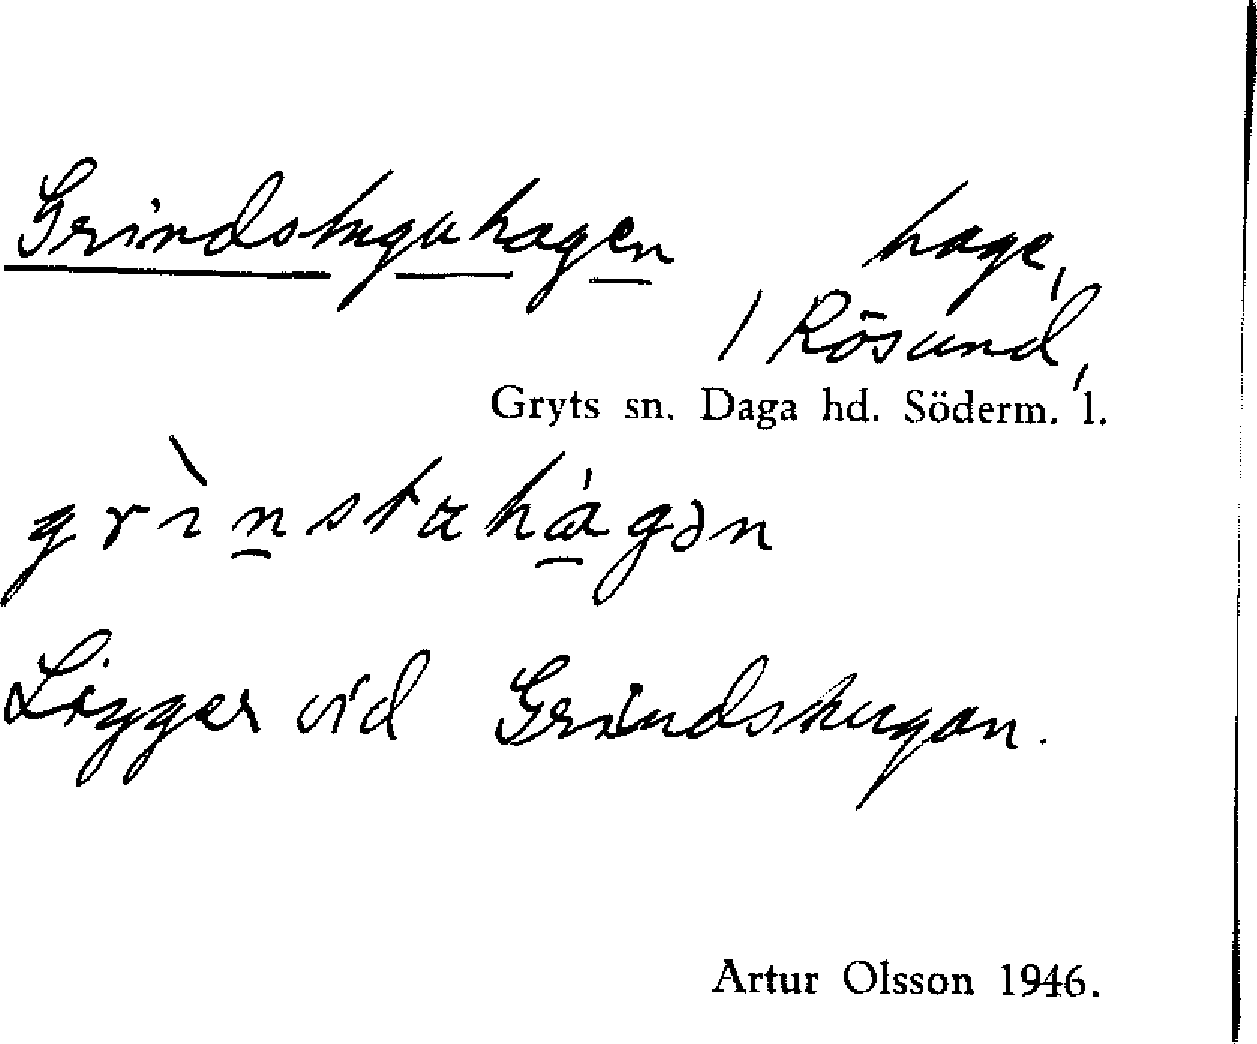 Grindstugahagen hage,
/ Rösund,
Gryts sn. Daga hd. Söderm. l.
grìnstahágən
Ligger vid Grindstugan.
Artur Olsson 1946.